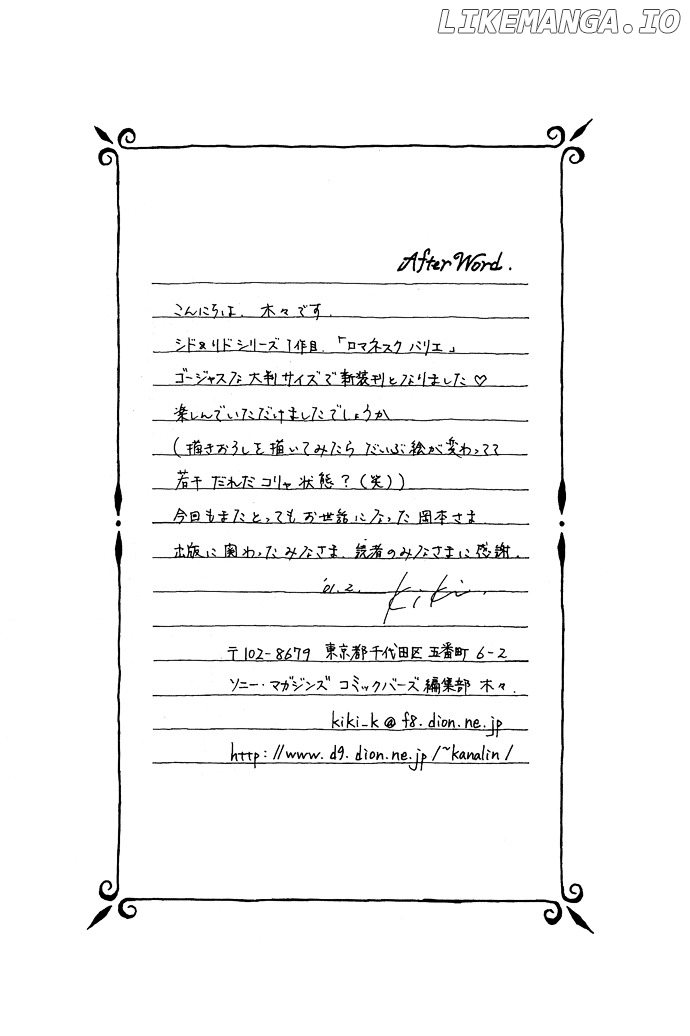 LIKEMANGA.IO
After Word.
こんにちは、木々です。
シド&リドシリーズ1作目、「ロマネスク バリエ」
ゴージャスな大判サイズで新装刊となりました♡
楽しんでいただけましたでしょうか
(描きおろしを描いてみたら だいぶ絵が変わってて
若干 だれだコリャ状態?(笑))
今回もまたとってもお世話になった岡本さま
出版に関わったみなさま、読者のみなさまに感謝。
'01.2. kiki.
〒102-8679 東京都千代田区五番町6-2
ソニー・マガジンズ コミックバーズ編集部 木々.
kiki_k@f8.dion.ne.jp
http://www.d9.dion.ne.jp/~kanalin/